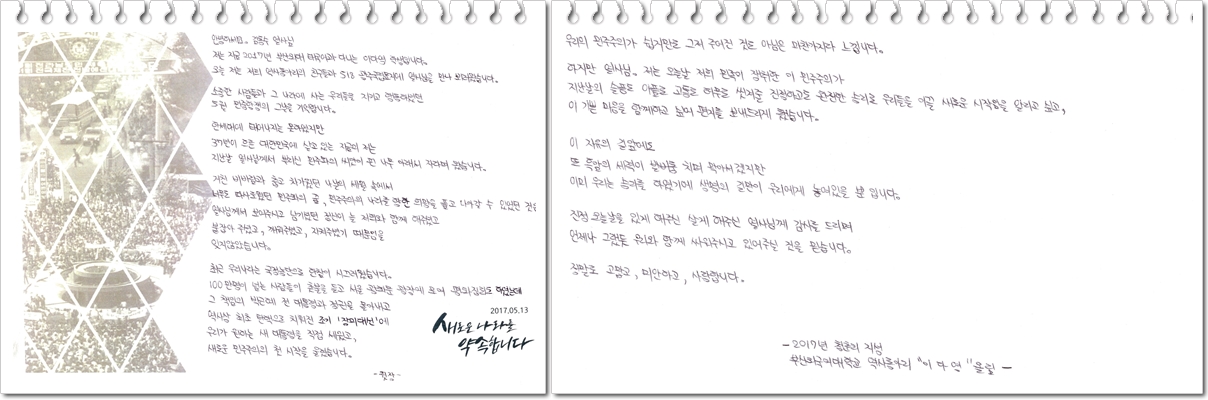 안녕하세요. 김동수 열사님
저는 지금 2017년 부산외대 다니는 이다연 학생입니다.
오늘 저는 저희 역사동아리의 친구들과 5.18 열사님을 만나 뵈러왔습니다.
소중한 사람들과 그 나라에 사는 우리들을 지키고
5월 민중항쟁의 그날을 기억합니다.
한세대에 태어나지는 못하였지만
37년이 흐른 대한민국에 살고 있는 지금의 저는
지난날 열사님께서 뿌리신 민주화의 씨앗이 된 나무 아래에서 자라며 왔습니다.
거친 비바람과 춥고 차가웠던 나날의 세월 속에서
민주화의 꿈, 민주주의의 나라를 향한 희망을 품고 나아갈 수 있었던 것은
열사님께서 보여주시고 남기셨던 정신이 늘 저희와 함께 해주셨고
붙잡아 주셨고, 깨워주셨고, 지켜주셨기 때문임을
잊지않았습니다.
최근 우리나라는 국정농단으로 한창이 시끄러웠습니다.
100만명이 넘는 사람들이 촛불을 들고 서울 광화문 광장에 모여 평화집회도 하였는데
그 책임의 박근혜 전 대통령과 정권을 몰아내고
역사상 최초 탄핵으로 치뤄진 조기 '장미대선'에
우리가 원하는 새 대통령을 직접 세웠고,
새로운 민주주의의 첫 시작을 알렸습니다.
2017.05.13
새로운 나라를
약속합니다
-뒷장-
우리의 민주주의가 쉽게만은 그저 주어진 것은 아님은 마찬가지라 느낍니다.
하지만 열사님. 저는 오늘날 저희 민족이 쟁취한 이 민주주의가
지난날의 슬픔도 아픔도 고통도 하루도 씻겨줄 진정하고도 완전한 승리로 우리들을 이끌 새로운 시작임을 알리고 싶고,
이 기쁜 마음을 함께하고 싶어 편지를 보내드리게 됐습니다.
이 자유의 길앞에도
또 흑암의 세력이 발버둥 치며 막아서겠지만
이미 우리는 승리를 하였기에 생명의 길만이 우리에게 놓여있을 뿐 입니다.
진정 오늘날을 있게 해주신 살게 해주신 열사님께 감사를 드리며
언제나 그랬듯 우리와 함께 싸워주시고 있어주실 것을 믿습니다.
정말로 고맙고, 미안하고, 사랑합니다.
- 2017년 청춘의 지성
부산외국어대학교 역사동아리 "이 다 연" 올림 -